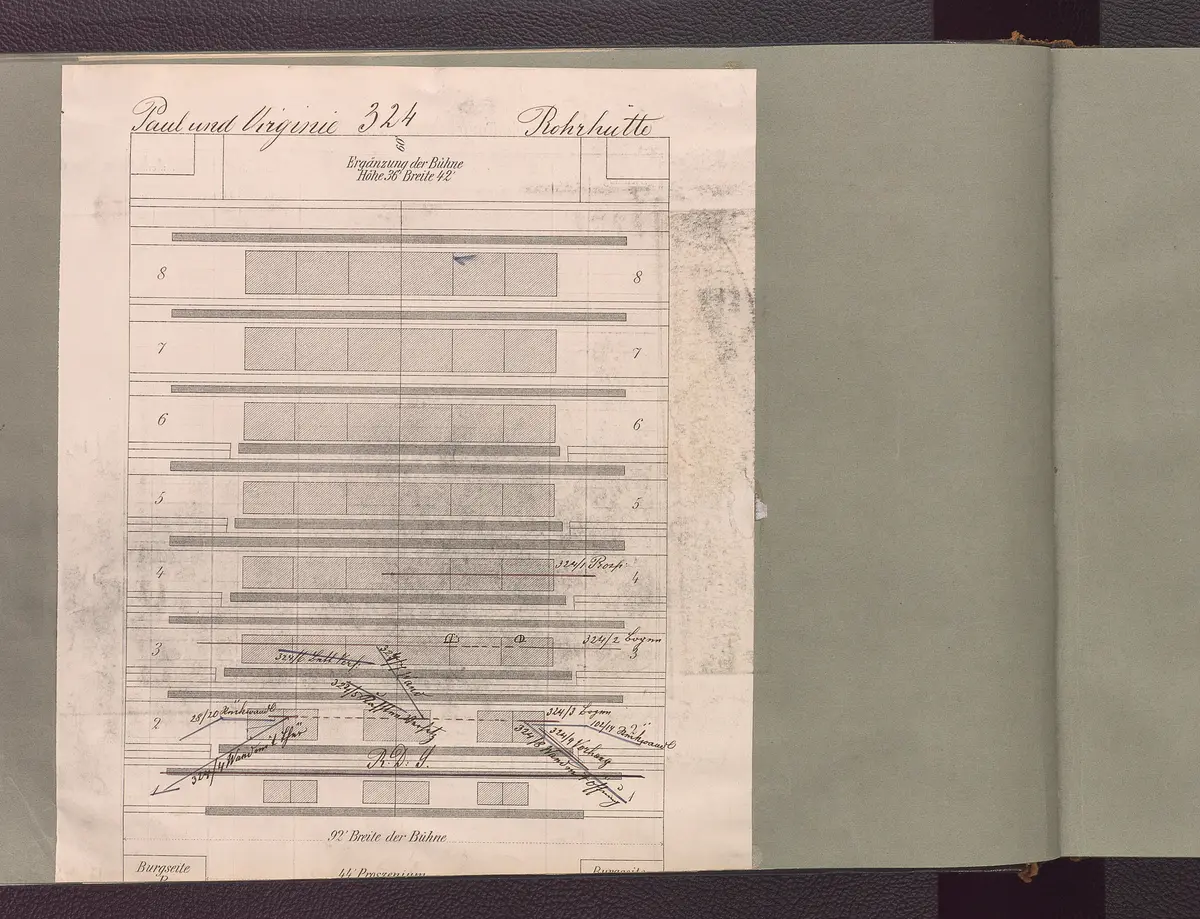 Paul und Virginie 324 Rohrhütte
Ergänzung der Bühne
Höhe 36' Breite 42'
8 8
7 7
6 6
5 5
324/1 Prosp
4 4
324/2 Bogen
3 3
324/6 Bett Vers.
324/7 Wand
324/5
28/20 Rückwandl
324/3 Bogen
102/14 Rückwandl
2 2
324/9 Vorhang
324/4 Wand mit Thür
324/8 Wand m Öffng
R. D. S.
1 1
92' Breite der Bühne
Burgseite 44' Proszenium Burgseite